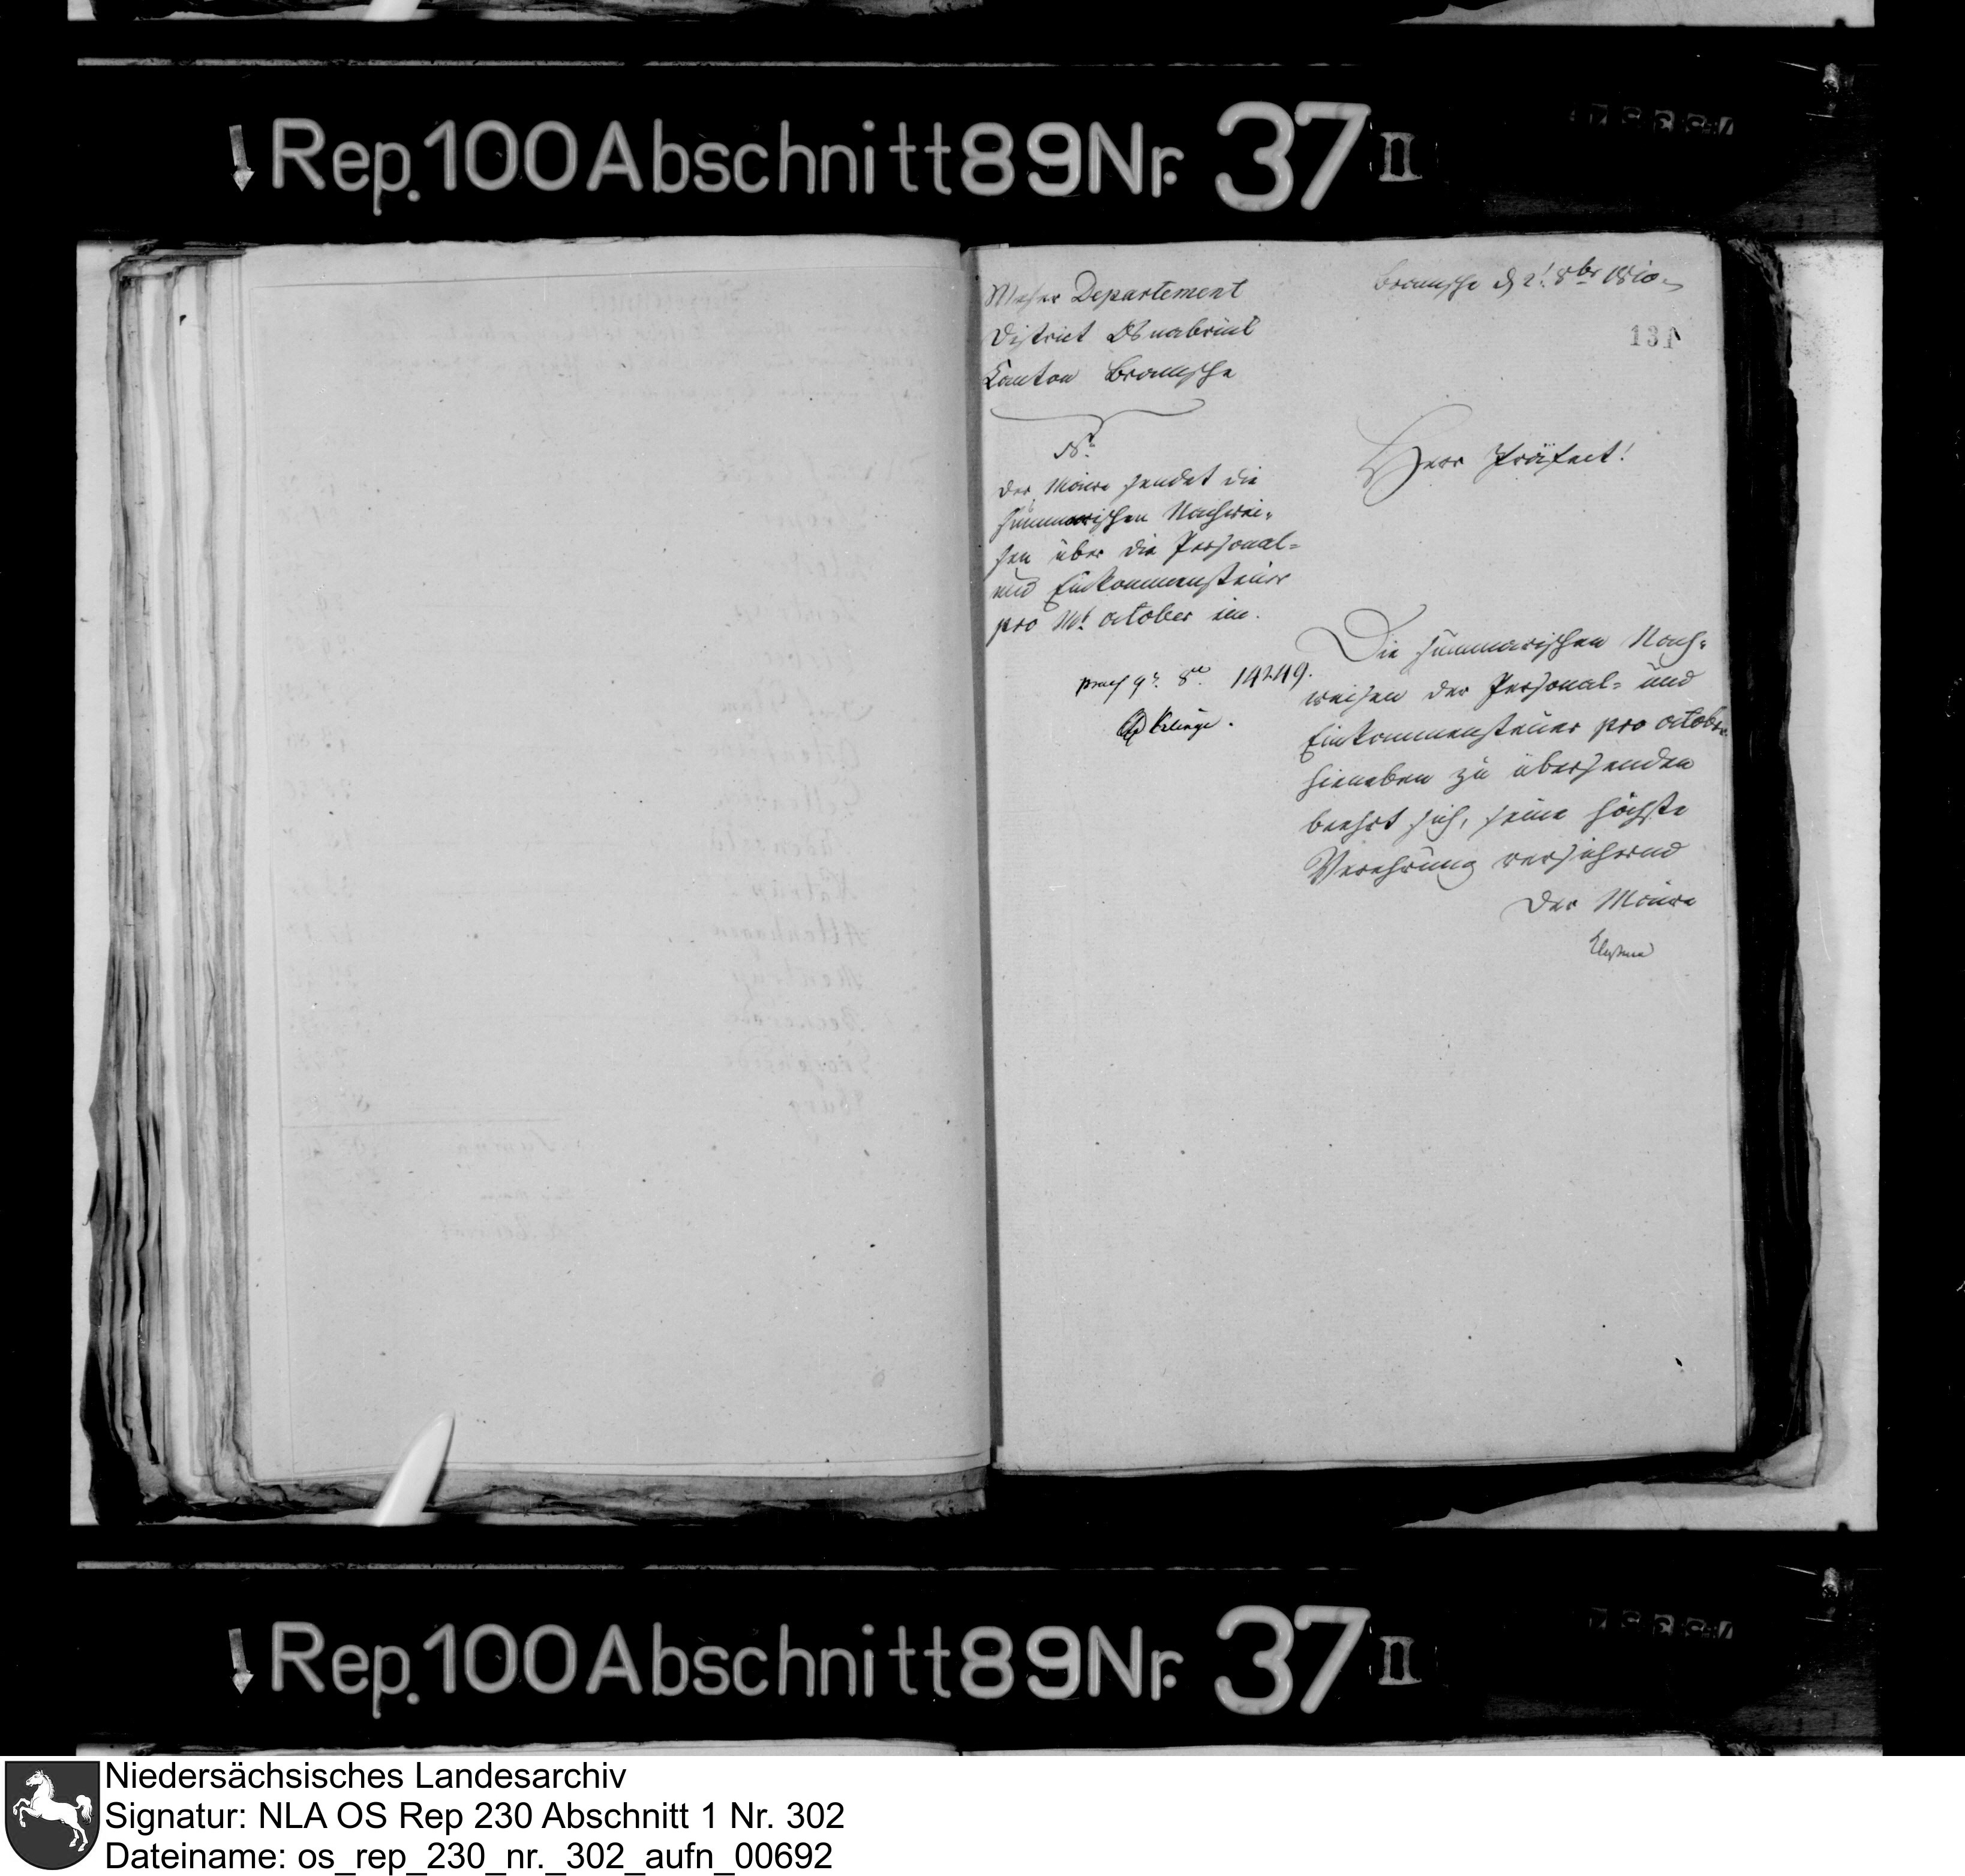 Rep. 100 Abschnitt 89 Nr. 37 II
Weser Departement
District Osnabrück
Canton Bramsche
Bramsche d 2t. 8br 1810.
131
N.
Der Maire sendet die
summarischen Nachwei-
sen über die Personal-
und Einkommensteuer
pro Mt. October ein.
praes 9r. 8. 14249.
Herr Präfect!
Die summarischen Nach-
weisen der Personal- und
Einkommensteuer pro October
hieneben zu übersenden
beehrt sich, seine höchste
Verehrung versichernd
Der Maire
Rep. 100 Abschnitt 89 Nr. 37 II
Niedersächsisches Landesarchiv
Signatur: NLA OS Rep 230 Abschnitt 1 Nr. 302
Dateiname: os_rep_230_nr._302_aufn_00692